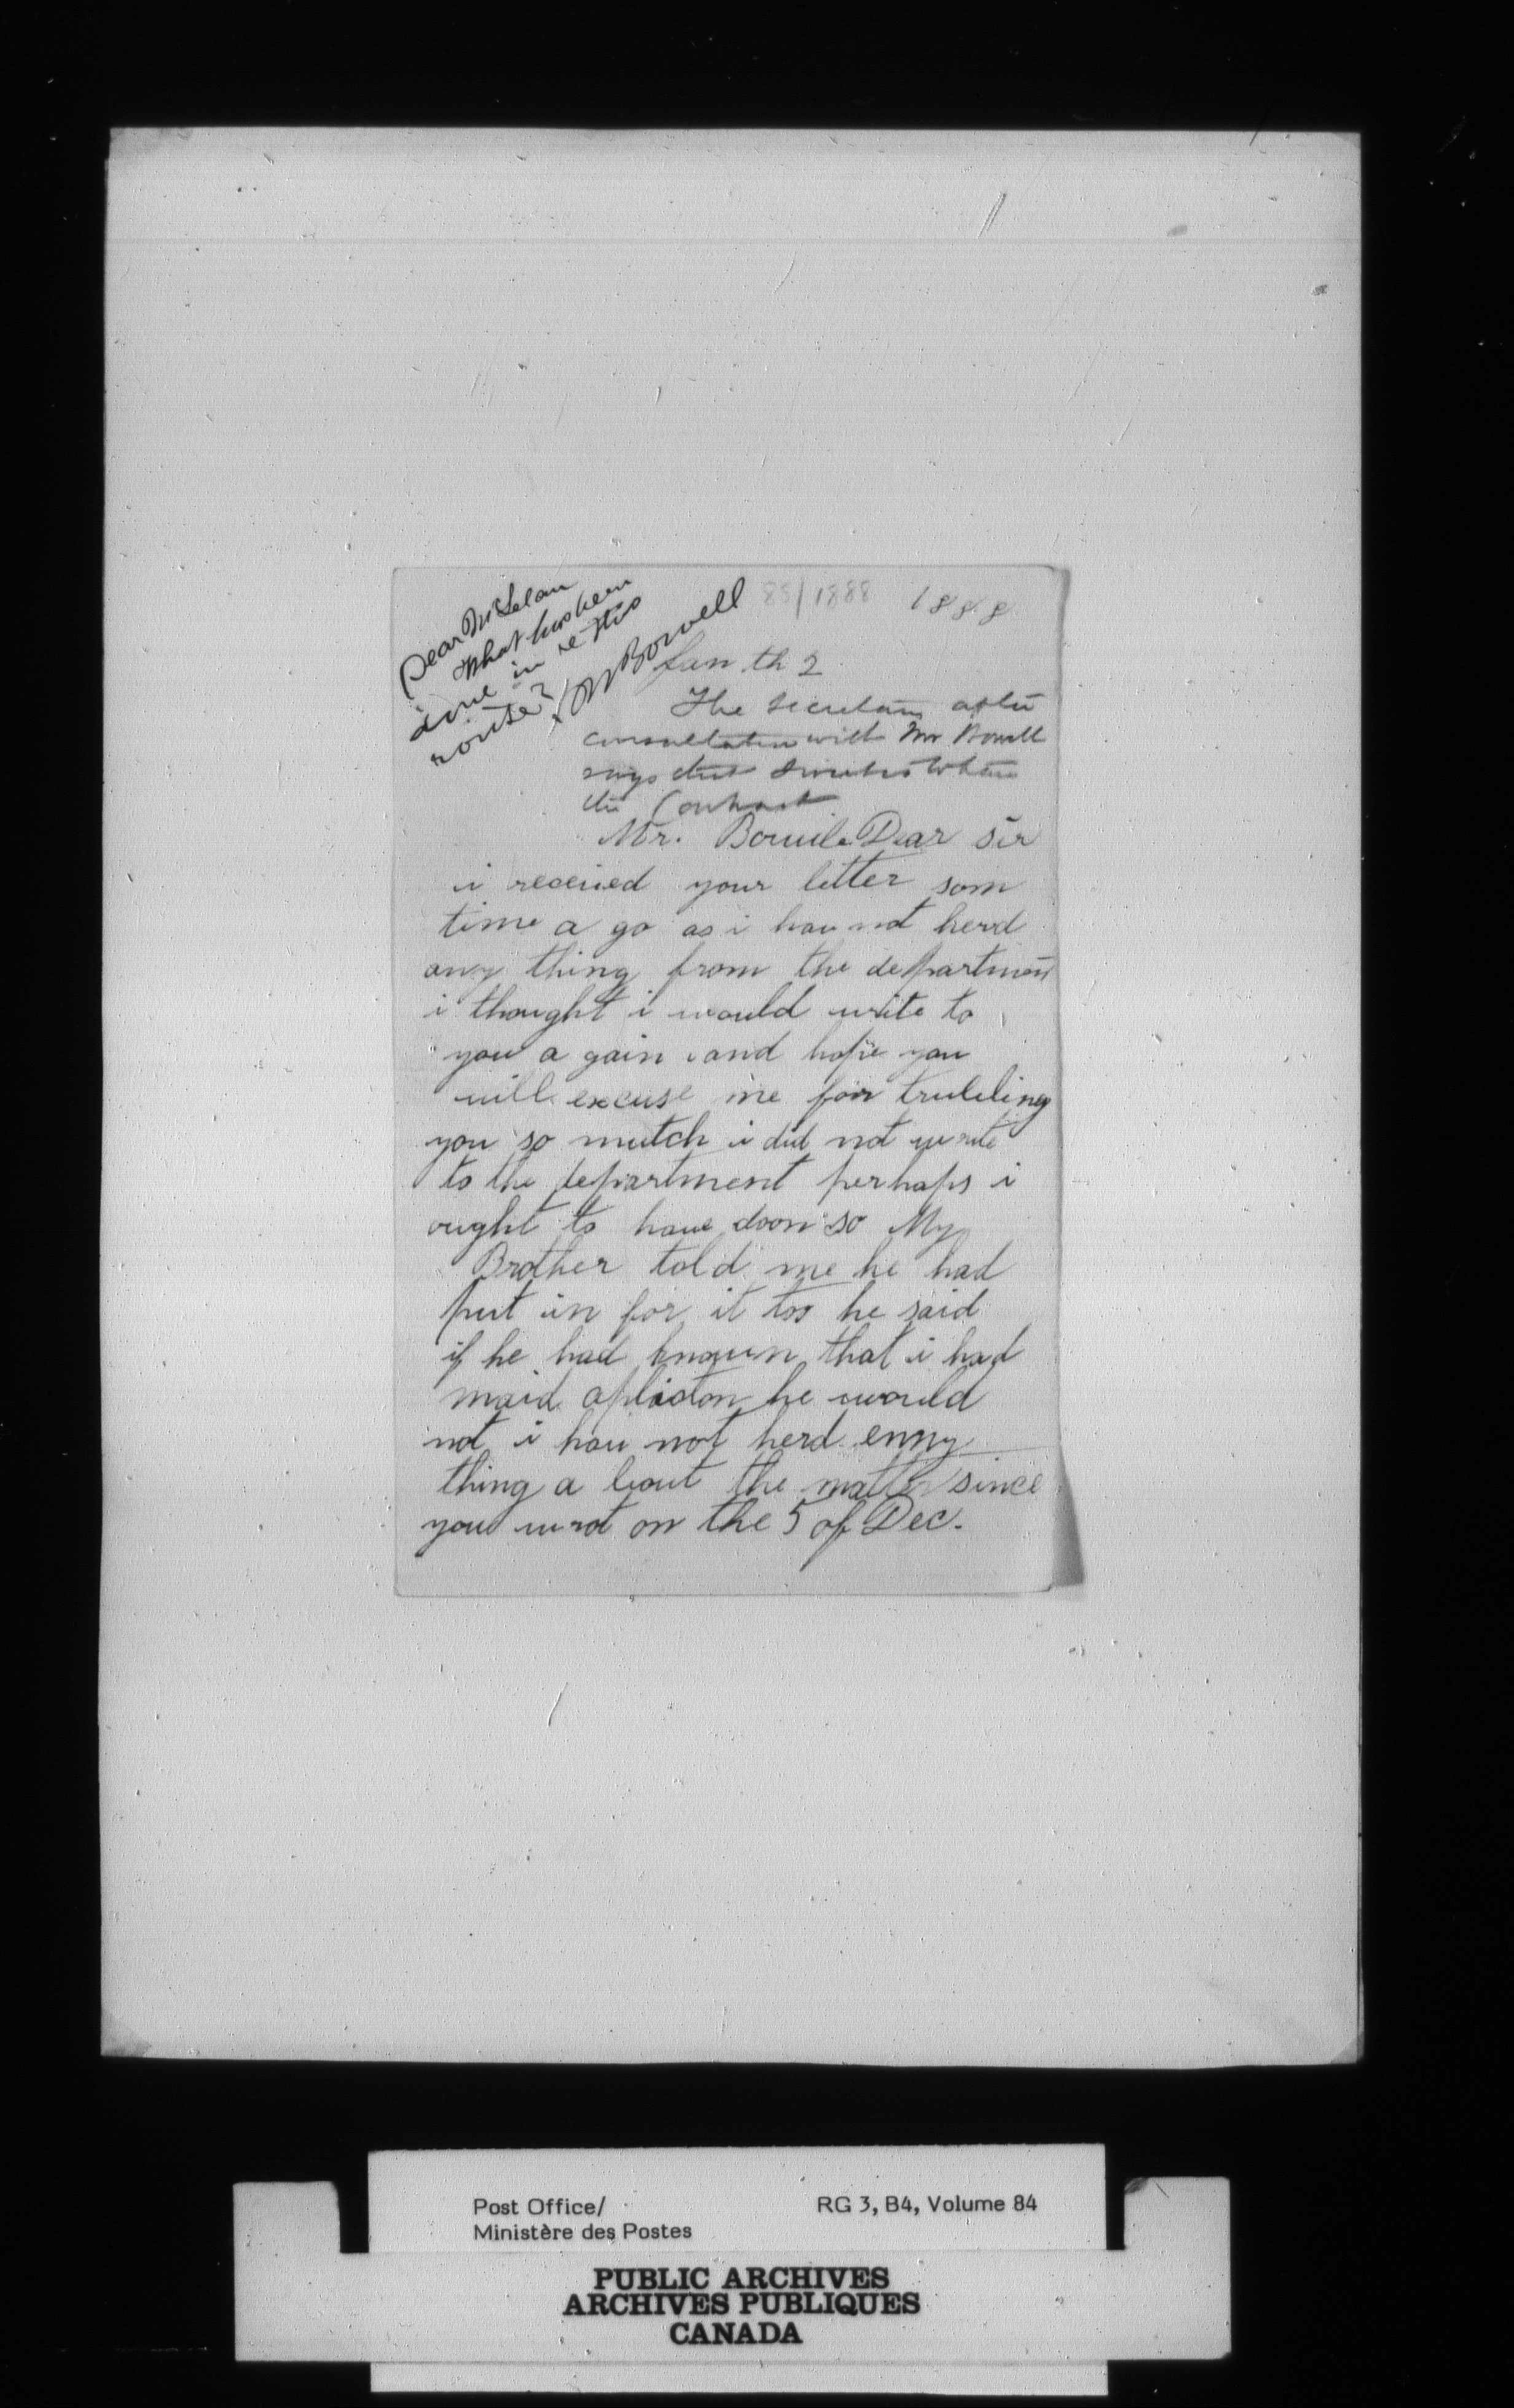 Dear McLelan
What has been
done in re this
route?
M Bowell
85/1888
1888
Jan th 2
The Secretary after
consultation with Mr Bowell
says that
the Contract
Mr. Bouile Dear Sir
i received your letter som
time a go as i hav not herd
any thing from the department
i thought i would write to
you a gain and hope you
will excuse me for trubling
you so mutch i did not write
to the department perhaps i
ought to have doon so My
Brother told me he had
put in for it too he said
if he had known that i had
maid apliction he would
not i hav not herd enny
thing a bout the matter since
you wrot on the 5 of Dec.
Post Office/
Ministère des Postes
RG 3, B4, Volume 84
PUBLIC ARCHIVES
ARCHIVES PUBLIQUES
CANADA